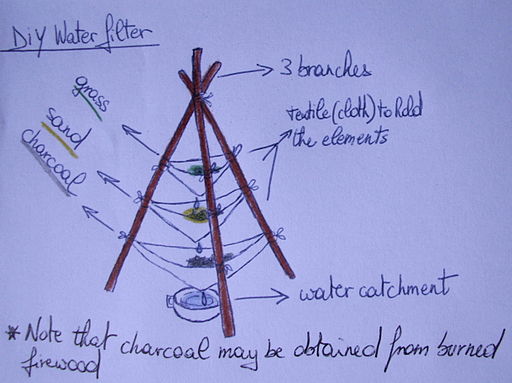 Diy Water filter
3 branches
grass
textile (cloth) to hold
the elements
sand
charcoal
water catchment
* Note that charcoal may be obtained from burned
firewood